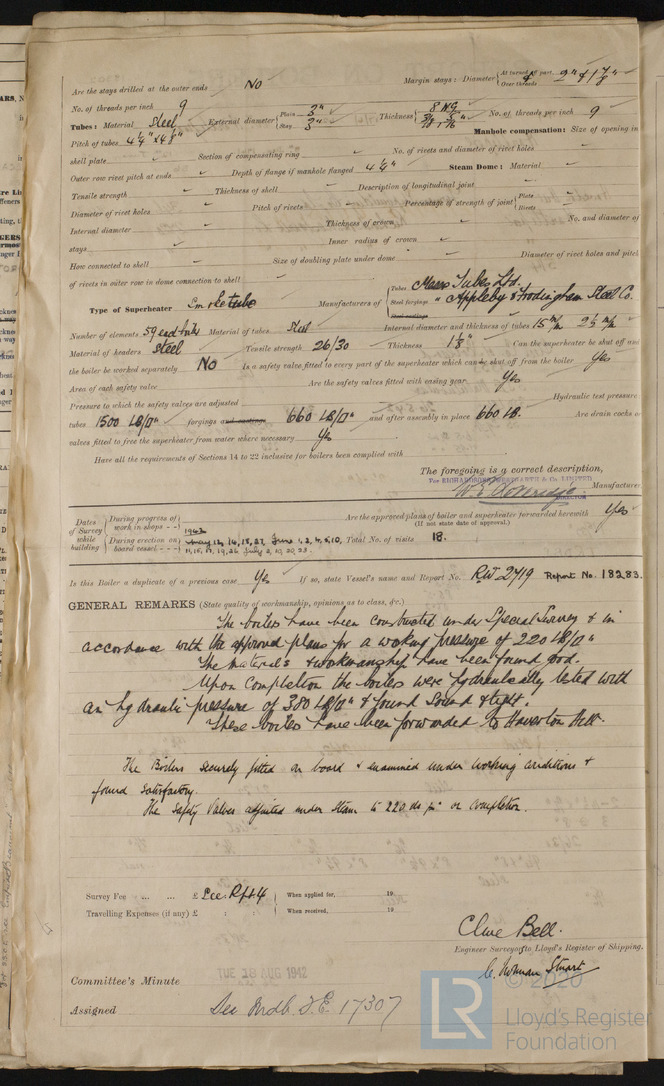 Are the stays drilled at the outer ends No Margin stays: Diameter { At turned off part 2" & 1 7/8"
Over threads
No. of threads per inch 9
Tubes: Material Steel External diameter { Plain 3" Thickness { 8 WG No. of threads per inch 9
Stay 3"
Pitch of tubes 4 1/4" x 4 1/8" Manhole compensation: Size of opening in
shell plate Section of compensating ring No. of rivets and diameter of rivet holes
Outer row rivet pitch at ends Depth of flange if manhole flanged 4 1/4" Steam Dome: Material
Tensile strength Thickness of shell Description of longitudinal joint
Diameter of rivet holes Pitch of rivets Percentage of strength of joint { Plate
Rivets
Internal diameter Thickness of crown No. and diameter of
stays Inner radius of crown
How connected to shell Size of doubling plate under dome Diameter of rivet holes and pitch
of rivets in outer row in dome connection to shell
Type of Superheater Smoketube Manufacturers of { Tubes Tubes Ltd.
Steel forgings " Appleby & Frodingham Steel Co.
Steel castings
Number of elements 59 each Material of tubes Steel Internal diameter and thickness of tubes 15 m/m 2½ m/m
Material of headers Steel Tensile strength 26/30 Thickness 1 1/8" Can the superheater be shut off and
the boiler be worked separately No Is a safety valve fitted to every part of the superheater which can be shut off from the boiler Yes
Area of each safety valve Are the safety valves fitted with easing gear Yes
Pressure to which the safety valves are adjusted Hydraulic test pressure
tubes 1500 LB/□" forgings and castings 660 LB/□" and after assembly in place 660 LB. Are drain cocks or
valves fitted to free the superheater from water where necessary Yes
Have all the requirements of Sections 14 to 22 inclusive for boilers been complied with
The foregoing is a correct description,
For RICHARDSONS WESTGARTH & Co. LIMITED
Manufacturer
DIRECTOR
Dates of Survey while building { During progress of work in shops - - } 1942 Are the approved plans of boiler and superheater forwarded herewith Yes
(If not state date of approval.)
{ During erection on board vessel - - - } May 12, 14, 18, 27, June 1, 2, 4, 8, 10, Total No. of visits 18.
11, 15, 17, 19, 26, July 2, 10, 20, 23.
Is this Boiler a duplicate of a previous case Yes If so, state Vessel's name and Report No. RW 2719 Report No. 18283.
GENERAL REMARKS (State quality of workmanship, opinions as to class, &c.)
The boilers have been constructed under Special Survey & in
accordance with the approved plans for a working pressure of 220 LB/□"
The materials & workmanship have been found good.
Upon completion the boilers were hydraulically tested with
an hydraulic pressure of 380 LB/□" & found sound & tight.
These boilers have been forwarded to Haverton Hill.
The Boilers securely fitted on board & examined under working conditions &
found satisfactory.
The Safety Valves adjusted under steam to 220 on completion.
Survey Fee ... ... £ See Rpt 4 { When applied for, 19
Travelling Expenses (if any) £ : : { When received, 19
Clive Bell.
Engineer Surveyor to Lloyd's Register of Shipping.
C. Norman Stuart
Committee's Minute TUE 18 AUG 1942
Assigned See Mdb. F.E. 17307
LR
© 2020
Lloyd's Register
Foundation